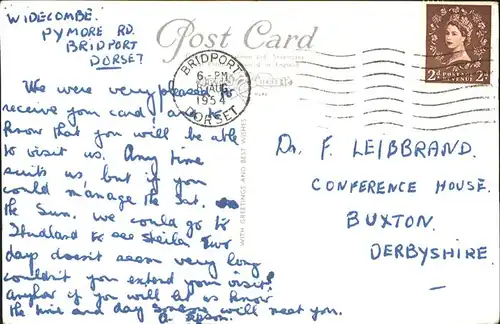 WIDECOMBE.
PYMORE RD.
BRIDPORT
DORSET
Post Card
BRIDPORT
6 - PM
AUG
1954
DORSET
2D POSTAGE REVENUE 2D
We were very pleased to
receive your card, and to
know that you will be able
to visit us. Any time
suits us, but if you
could manage the Sat.
the Sun. we could go to
Studland to see Sheila. Two
days doesn't seem very long
couldn't you extend your visit?
Anyhow if you will let us know
the time and day someone will meet you.
WITH GREETINGS AND BEST WISHES
Dr. F. LEIBBRAND.
CONFERENCE HOUSE.
BUXTON.
DERBYSHIRE.